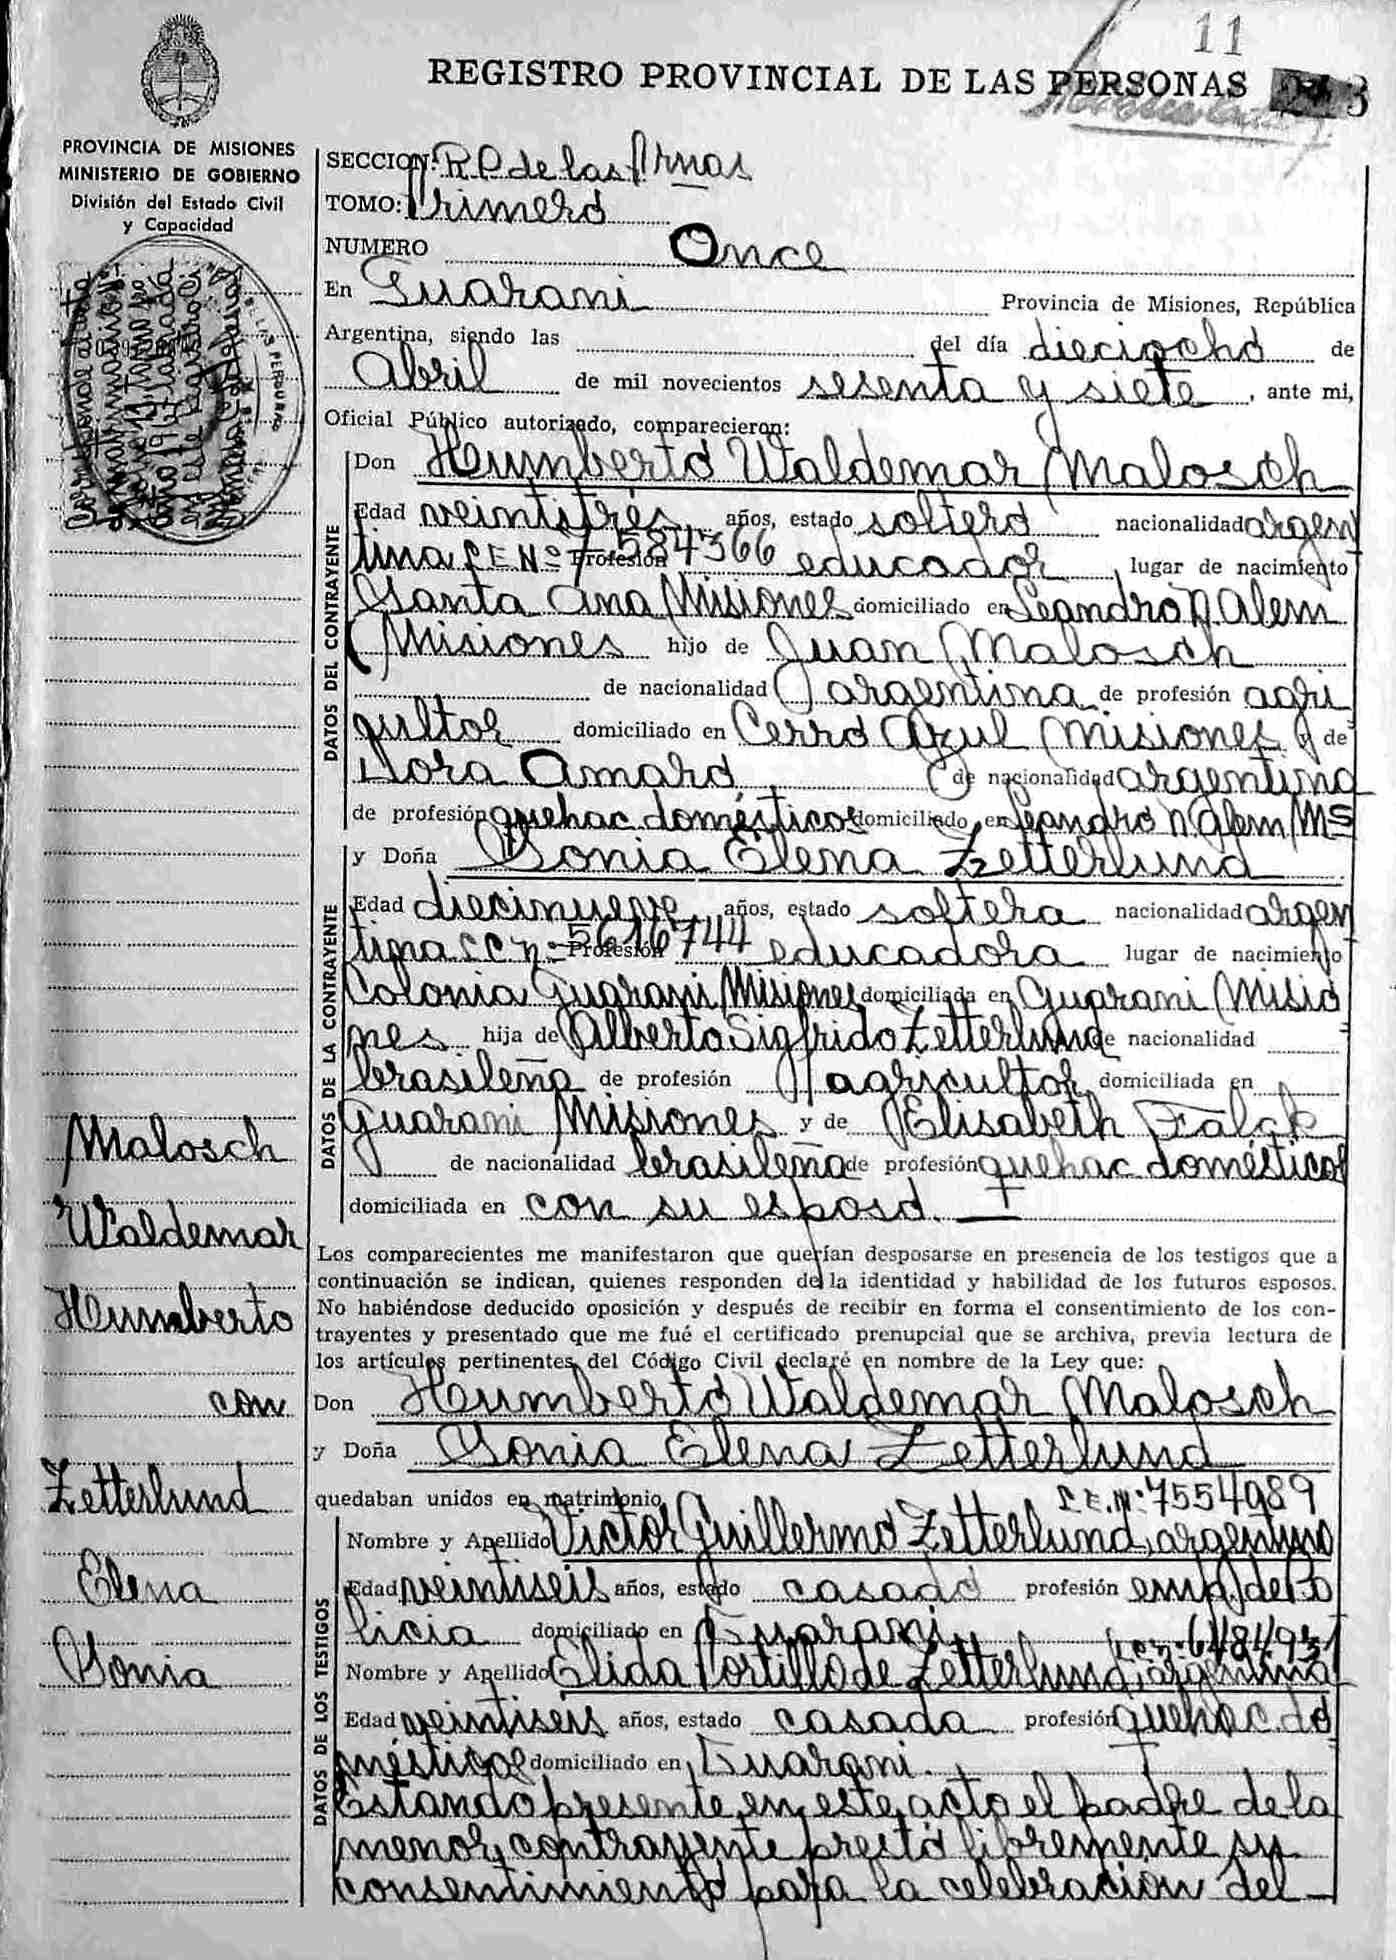 11
REGISTRO PROVINCIAL DE LAS PERSONAS
PROVINCIA DE MISIONES
MINISTERIO DE GOBIERNO
División del Estado Civil
y Capacidad
SECCION: R.P. de las Prnas
TOMO: Primero
NUMERO Once
En Guarani Provincia de Misiones, República
Argentina, siendo las del día dieciocho de
Abril de mil novecientos sesenta y siete, ante mi,
Oficial Público autorizado, comparecieron:
DATOS DEL CONTRAYENTE
Don Humberto Waldemar Malosch
Edad veintitrés años, estado soltero nacionalidad argen
tina C E Nº 7584366 Profesión educador, lugar de nacimiento
Santa Ana Misiones domiciliado en Leandro N Alem
Misiones hijo de Juan Malosch
de nacionalidad argentina de profesión agri
cultor domiciliado en Cerro Azul Misiones y de
Dora Amaro de nacionalidad argentina
de profesión quehac domésticos domiciliado en Leandro N. Alem Ms
DATOS DE LA CONTRAYENTE
y Doña Sonia Elena Zetterlund
Edad diecinueve años, estado soltera nacionalidad argen
tina C C n: 5616744 Profesión educadora lugar de nacimiento
Colonia Guarani Misiones domiciliada en Guarani Misio
nes. hija de Alberto Sigfrido Zetterlund de nacionalidad
brasileña de profesión agricultor domiciliada en
Guarani Misiones y de Elisabeth Falck
de nacionalidad brasileña de profesión quehac domésticos
domiciliada en con su esposo.
Los comparecientes me manifestaron que querían desposarse en presencia de los testigos que a
continuación se indican, quienes responden de la identidad y habilidad de los futuros esposos.
No habiéndose deducido oposición y después de recibir en forma el consentimiento de los con-
trayentes y presentado que me fué el certificado prenupcial que se archiva, previa lectura de
los artículos pertinentes del Código Civil declaré en nombre de la Ley que:
Don Humberto Waldemar Malosch
y Doña Sonia Elena Zetterlund
quedaban unidos en matrimonio C.E.N: 7554989
DATOS DE LOS TESTIGOS
Nombre y Apellido Victor Guillermo Zetterlund, argentino
Edad veintiseis años, estado casado profesión emp. de Po
licia domiciliado en Guarani
L.C.n: 6484931
Nombre y Apellido Elida Portillo de Zetterlund, argentina
Edad veintiseis años, estado casada profesión quehac. do
mésticos domiciliado en Guarani.
Estando presente en este acto el padre de la
menor contrayente prestó libremente su
consentimiento para la celebración del
Malosch
Waldemar
Humberto
con
Zetterlund
Elena
Sonia